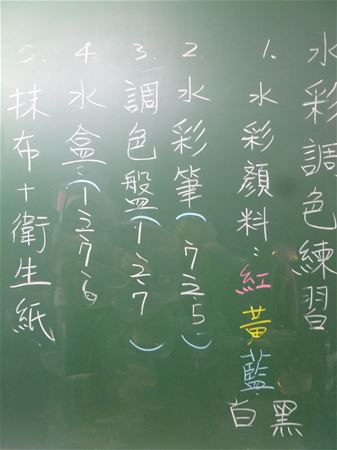 水彩調色練習
1. 水彩顏料:紅黃藍白黑
2. 水彩筆(7、2、5)
3. 調色盤(1、2、7)
4. 水盒(1、3、7、6
5. 抹布+衛生紙